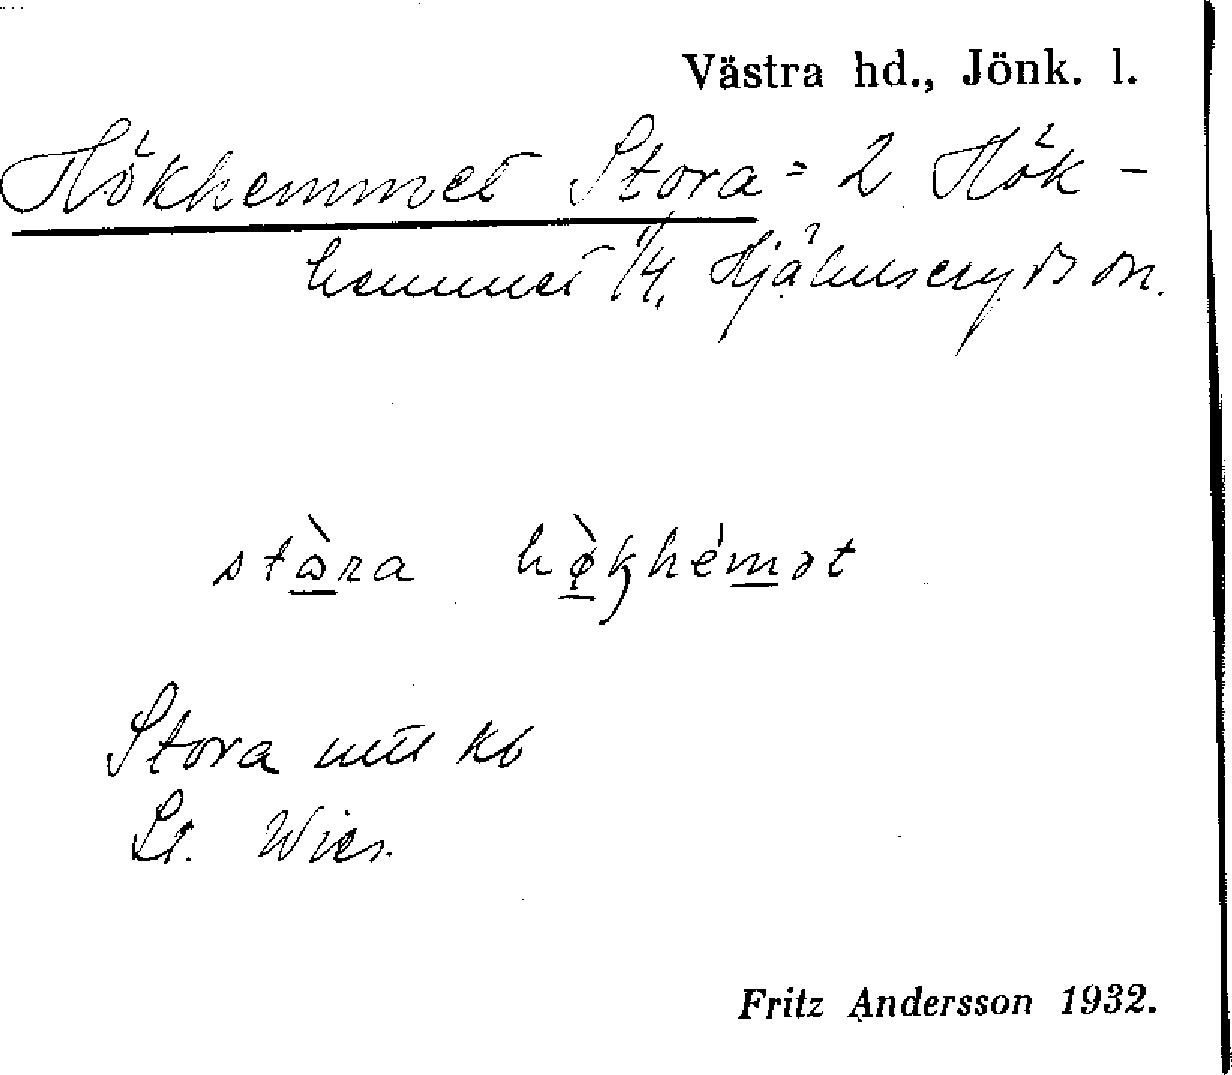 Västra hd., Jönk. l.
Hökhemmet Stora = 2 Hök-
hemmet 1/4, Hjälmseryds sn.
stɷ̀ra hø̀khémət
Stora utl kb
Lt. Wies.
Fritz Andersson 1932.